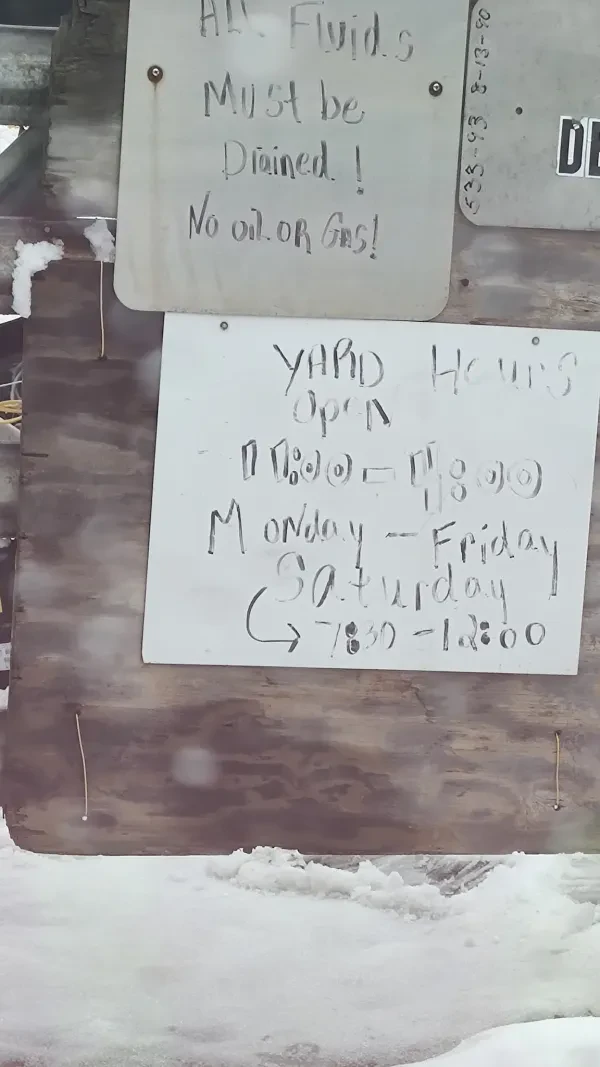 ALL Fluids
Must be
Drained!
No oil or Gas!
533-93 8-13-90
DE
YARD Hours
Open
Monday - Friday
Saturday
7:30 - 12:00